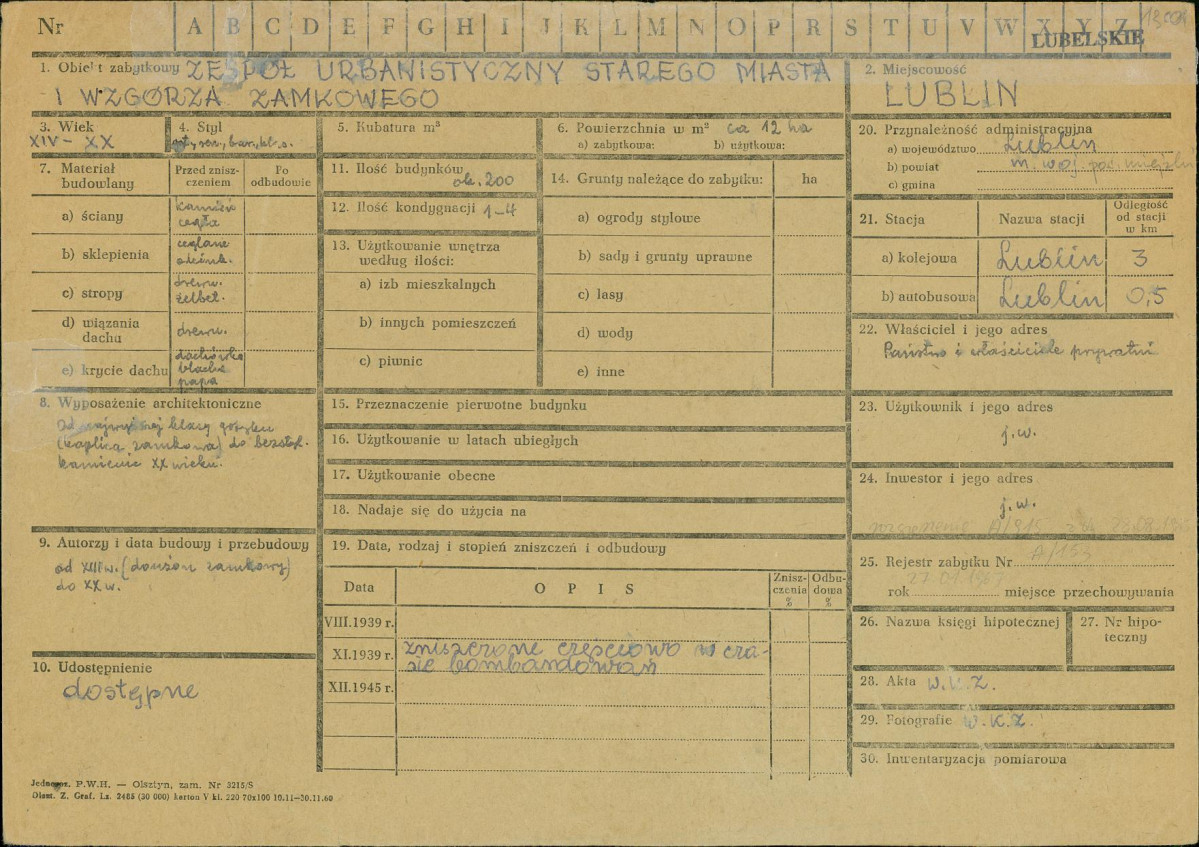 Nr A B C D E F G H I J K L M N O P R S T U V W X Y Z
LUBELSKIE
1. Obiekt zabytkowy ZESPÓŁ URBANISTYCZNY STAREGO MIASTA
I WZGÓRZA ZAMKOWEGO
2. Miejscowość
LUBLIN
3. Wiek
XIV - XX
4. Styl
got., ren., bar., kl.
5. Kubatura m³
6. Powierzchnia w m² ca 12 ha
a) zabytkowa: b) użytkowa:
20. Przynależność administracyjna
a) województwo Lublin
b) powiat m. woj. pow. miejski
c) gmina
7. Materiał
budowlany
Przed znisz-
czeniem
Po
odbudowie
a) ściany kamień
cegła
b) sklepienia ceglane
c) stropy drewn.
żelbet.
d) wiązania
dachu
drewn.
e) krycie dachu dachówka
blacha
papa
11. Ilość budynków
ok. 200
12. Ilość kondygnacji 1-4
13. Użytkowanie wnętrza
według ilości:
a) izb mieszkalnych
b) innych pomieszczeń
c) piwnic
14. Grunty należące do zabytku: ha
a) ogrody stylowe
b) sady i grunty uprawne
c) lasy
d) wody
e) inne
21. Stacja Nazwa stacji Odległość
od stacji
w km
a) kolejowa Lublin 3
b) autobusowa Lublin 0,5
22. Właściciel i jego adres
Państwo i właściciele prywatni
8. Wyposażenie architektoniczne
od najwyższej klasy gotyku
(kaplica zamkowa) do bezstyl.
kamienic XX wieku.
15. Przeznaczenie pierwotne budynku
16. Użytkowanie w latach ubiegłych
17. Użytkowanie obecne
18. Nadaje się do użycia na
23. Użytkownik i jego adres
j.w.
24. Inwestor i jego adres
j.w.
9. Autorzy i data budowy i przebudowy
od XIII w. (donżon zamkowy)
do XX w.
19. Data, rodzaj i stopień zniszczeń i odbudowy
Data OPIS Znisz-
czenia
%
Odbu-
dowa
%
VIII.1939 r.
XI.1939 r. zniszczone częściowo w cza-
sie bombardowań
XII.1945 r.
A/915
25. Rejestr zabytku Nr A/153
rok 27 01 1967 miejsce przechowywania
26. Nazwa księgi hipotecznej
27. Nr hipo-
teczny
10. Udostępnienie
dostępne
28. Akta W.K.Z.
29. Fotografie W.K.Z.
30. Inwentaryzacja pomiarowa
P.W.H. — Olsztyn, zam. Nr 3215/S
Olszt. Z. Graf. Lz. 2485 (30 000) karton V kl. 220 70x100 10.11—30.11.60